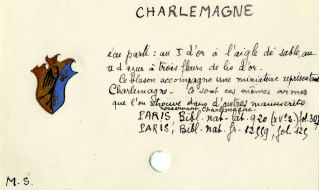 CHARLEMAGNE
parti : au I d'or à l'aigle de sable, au
II d'azur à trois fleurs de lis d'or.
Ce blason accompagne une miniature représentant
Charlemagne. Ce sont ces mêmes armes
que l'on retrouve dans d'autres manuscrits
concernant Charlemagne.
PARIS Bibl. nat. lat. 920 (XVe s.) fol.
PARIS, Bibl. nat. fr. fol.
M. S.